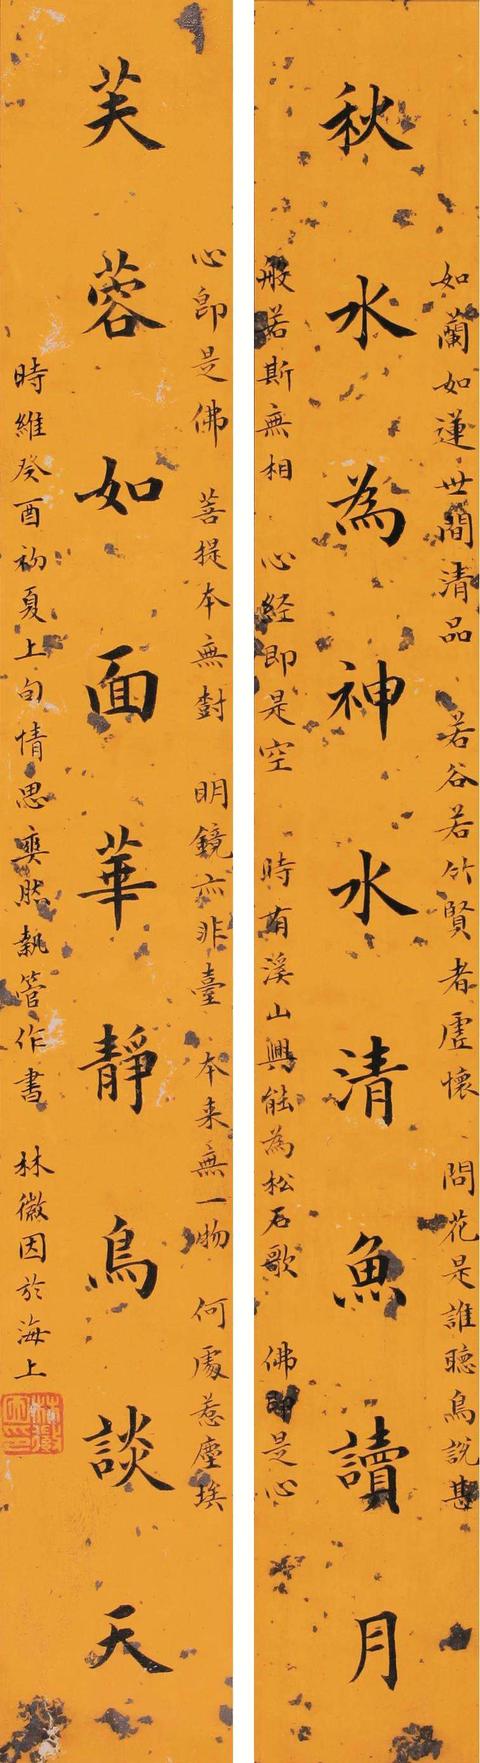 如蘭如蓮世間清品 若谷若竹賢者虛懷 問花是誰聽鳥說甚
秋水為神水清魚讀月
般若斯無相 心経即是空 時有溪山興能為松石歌 佛即是心
心即是佛 菩提本無樹 明鏡亦非臺 本来無一物 何處惹塵埃
芙蓉如面華靜鳥談天
時維癸酉初夏上旬情思奕然執管作書 林徽因於海上